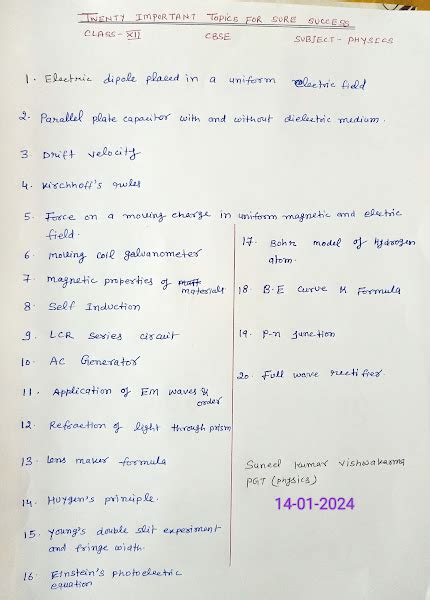 TWENTY IMPORTANT TOPICS FOR SURE SUCCESS
CLASS-XII CBSE SUBJECT-PHYSICS
1. Electric dipole placed in a uniform electric field
2. Parallel plate capacitor with and without dielectric medium.
3. Drift velocity
4. Kirchhoff's rules
5. Force on a moving charge in uniform magnetic and electric
field.
6. moving coil galvanometer
7. magnetic properties of materials
8. Self Induction
9. LCR series circuit
10. AC Generator
11. Application of EM waves &
order
12. Refraction of light through prism
13. lens maker formula
14. Huygen's principle.
15. Young's double slit experiment
and fringe width.
16. Einstein's photoelectric
equation
17. Bohr model of hydrogen
atom.
18. B.E curve & Formula
19. P-n junction
20. Full wave rectifier.
Suneel kumar vishwakarma
PGT (physics)
14-01-2024